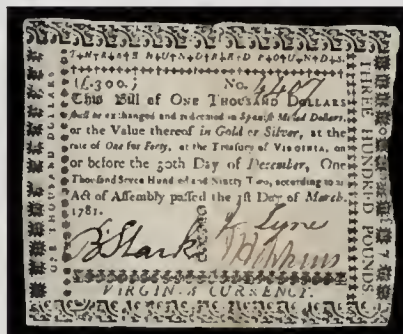 THREE HUNDRED POUNDS.
(£.300.) No. 4407
This Bill of ONE THOUSAND DOLLARS
shall be exchanged and redeemed in Spanish Milled Dollars,
or the Value thereof in Gold or Silver, at the
rate of One for Forty, at the Treasury of VIRGINIA, on
or before the 30th Day of December, One
Thousand Seven Hundred and Ninety Two, according to an
Act of Assembly passed the 1st Day of March,
1781.
B Stark
J Hopkins
VIRGINIA CURRENCY.
ONE THOUSAND DOLLARS
THREE HUNDRED POUNDS